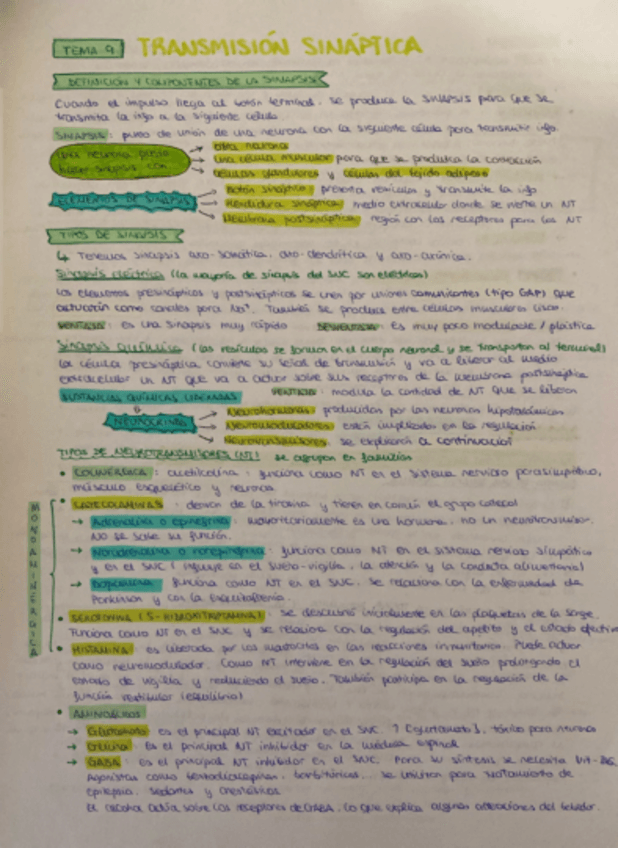 TEMA 9 TRANSMISIÓN SINÁPTICA
DEFINICIÓN Y COMPONENTES DE LA SINAPSIS
Cuando el impulso llega al botón terminal, se produce la SINAPSIS para que se
transmita la info a la siguiente célula
SINAPSIS: punto de unión de una neurona con la siguiente célula para transmitir info.
Una neurona puede
hacer sinapsis con
otra neurona
una célula muscular para que se produzca la contracción
células glandulares y células del tejido adiposo
ELEMENTOS DE SINAPSIS
Botón sináptico: presenta vesículas y transmite la info
Hendidura sináptica: medio extracelular donde se vierte un NT
Membrana postsináptica: región con los receptores para los NT
TIPOS DE SINAPSIS
↳ Tenemos sinapsis axo-somática, axo-dendrítica y axo-axónica.
Sinapsis eléctrica (la mayoría de sinapsis del SNC son eléctricas)
Los elementos presinápticos y postsinápticos se unen por uniones comunicantes (tipo GAP) que
actuarán como canales para Na⁺. También se produce entre células musculares lisas.
VENTAJA: es una sinapsis muy rápida DESVENTAJA: Es muy poco modulable / plástica
Sinapsis química (las vesículas se forman en el cuerpo neuronal y se transportan al terminal)
La célula presináptica convierte su señal de transmisión y va a liberar al medio
extracelular un NT que va a actuar sobre sus receptores de la membrana postsináptica
SUSTANCIAS QUÍMICAS LIBERADAS VENTAJA: modula la cantidad de NT que se libera
NEUROCRINAS
Neurohormonas: producidas por las neuronas hipotalámicas
Neuromoduladores: están implicados en la regulación
Neurotransmisores: se explicarán a continuación
TIPOS DE NEUROTRANSMISORES (NT): se agrupan en familias
• COLINÉRGICA: acetilcolina: funciona como NT en el sistema nervioso parasimpático,
músculo esquelético y neuronas.
MONOAMINÉRGICA
• CATECOLAMINAS: derivan de la tirosina y tienen en común el grupo catecol
→ Adrenalina o epinefrina: mayoritariamente es una hormona, no un neurotransmisor.
No se sabe su función.
→ Noradrenalina o norepinefrina: funciona como NT en el sistema nervioso simpático
y en el SNC (influye en el sueño-vigilia, la atención y la conducta alimentaria)
→ Dopamina: funciona como NT en el SNC. Se relaciona con la enfermedad de
Parkinson y con la esquizofrenia.
• SEROTONINA (5-HIDROXITRIPTAMINA): se descubrió inicialmente en las plaquetas de la sangre.
Funciona como NT en el SNC y se relaciona con la regulación del apetito y el estado afectivo
• HISTAMINA: es liberada por los mastocitos en las reacciones inmunitarias. Puede actuar
como neuromodulador. Como NT interviene en la regulación del sueño prolongando el
estado de vigilia y reduciendo el sueño. También participa en la regulación de la
función vestibular (equilibrio)
• AMINOÁCIDOS
→ Glutamato: es el principal NT excitador en el SNC. ↑ [glutamato], tóxico para neuronas
→ Glicina: Es el principal NT inhibidor en la médula espinal
→ GABA: es el principal NT inhibidor en el SNC. Para su síntesis se necesita vit-B6.
Agonistas como benzodiacepinas, barbitúricos... se utilizan para tratamiento de
epilepsia, sedantes y anestésicos.
El alcohol actúa sobre los receptores de GABA, lo que explica algunas alteraciones del bebedor.